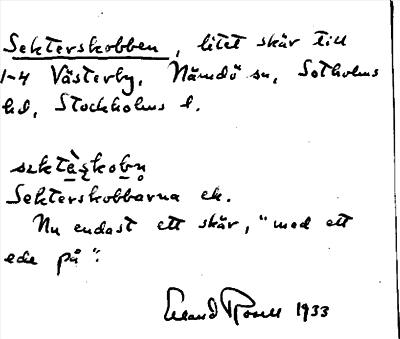 Sekterskobben, litet skär till
1-4 Västerby, Nämdö sn, Sotholms
hd, Stockholms l.
Sekterskobbarna ek.
Nu endast ett skär, "med ett
ede på".
Erland Rosell 1933